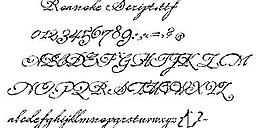 Roanoke Script.ttf
0123456789:;,=?@
ABCDEFGHIJKLM
NOPQRSTUVWXYZ
abcdefghijklmnopqrstuvwxyz